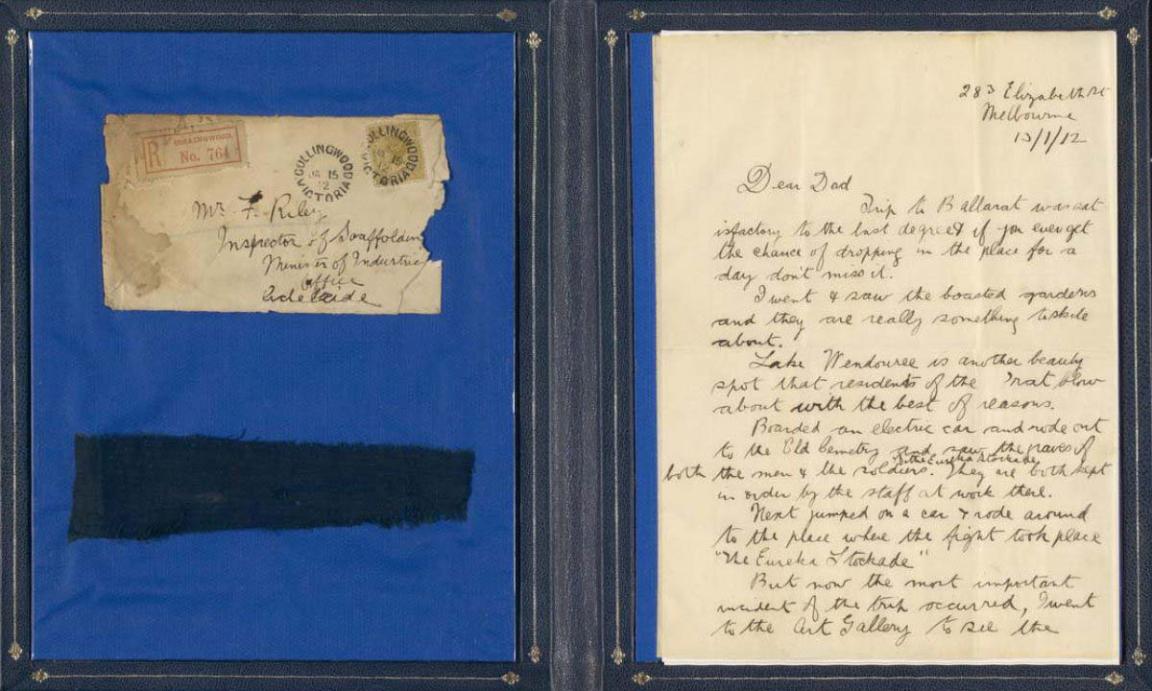 R
COLLINGWOOD.
No. 764
COLLINGWOOD
JA 15
12
VICTORIA
COLLINGWOOD
15
12
VICTORIA
Mr F. Riley
Inspector of Scaffolding
Minister of Industries
Office
Adelaide
283 Elizabeth St
Melbourne
13/1/12
Dear Dad
Trip to Ballarat was sat
isfactory to the last degree & if you ever get
the chance of dropping in the place for a
day don't miss it.
I went & saw the boasted gardens
and they are really something to skite
about.
Lake Wendouree is another beauty
spot that residents of the 'rat blow
about with the best of reasons.
Boarded an electric car and rode out
to the Old Cemetry and saw the graves of
of the Eureka Stockade
both the men & the soldiers. They are both kept
in order by the staff at work there.
Next jumped on a car & rode around
to the place where the fight took place
"The Eureka Stockade"
But now the most important
incident of the trip occurred, I went
to the Art Gallery to see the